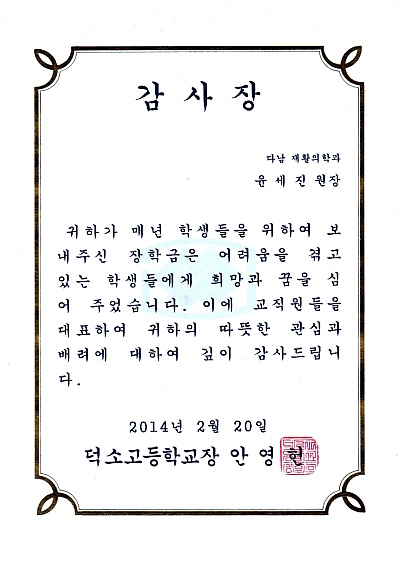 감 사 장
다남 재활의학과
윤 세 진 원장
귀하가 매년 학생들을 위하여 보
내주신 장학금은 어려움을 겪고
있는 학생들에게 희망과 꿈을 심
어 주었습니다. 이에 교직원들을
대표하여 귀하의 따뜻한 관심과
배려에 대하여 깊이 감사드립니
다.
2014년 2월 20일
덕소고등학교장 안 영 현